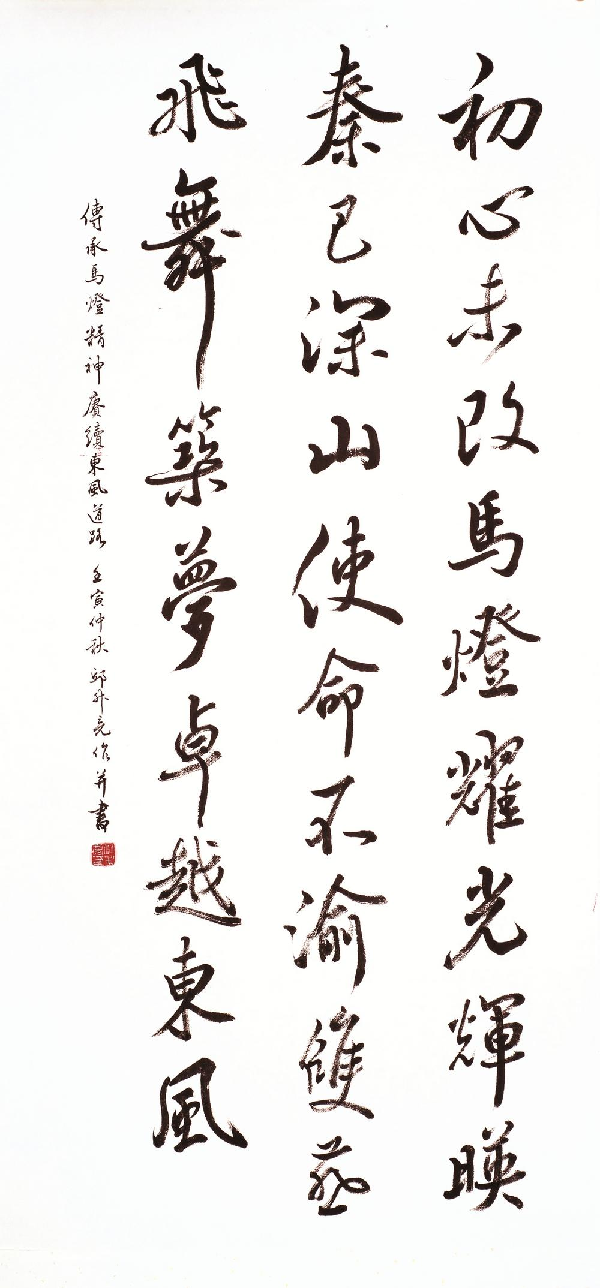 初心未改馬燈耀光輝暎
秦巴深山使命不渝雙燕
飛舞築夢卓越東風
傳承馬燈精神賡續東風道路 壬寅仲秋 邱 作并書